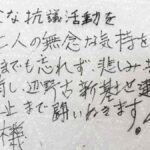 な抗議活動を
二人の無念な気持を
までも忘れず、悲しみも
し辺野古新基地建
止まで闘いぬきます。